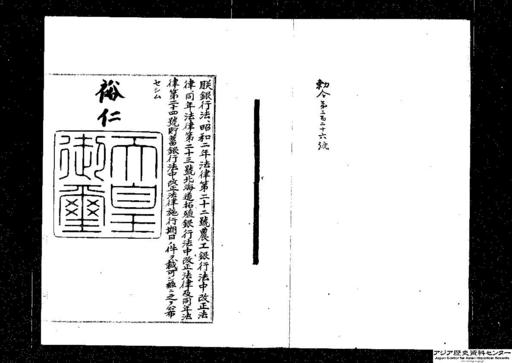 勅令第三百二十六號
朕銀行法、昭和二年法律第二十二號農工銀行法中改正法
律同年法律第二十三號北海道拓殖銀行法中改正法律及同年法
律第二十四號貯蓄銀行法中改正法律施行期日ノ件ヲ裁可シ茲ニ之ヲ公布
セシム
裕仁
天皇
御璽
アジア歴史資料センター
Japan Center for Asian Historical Records